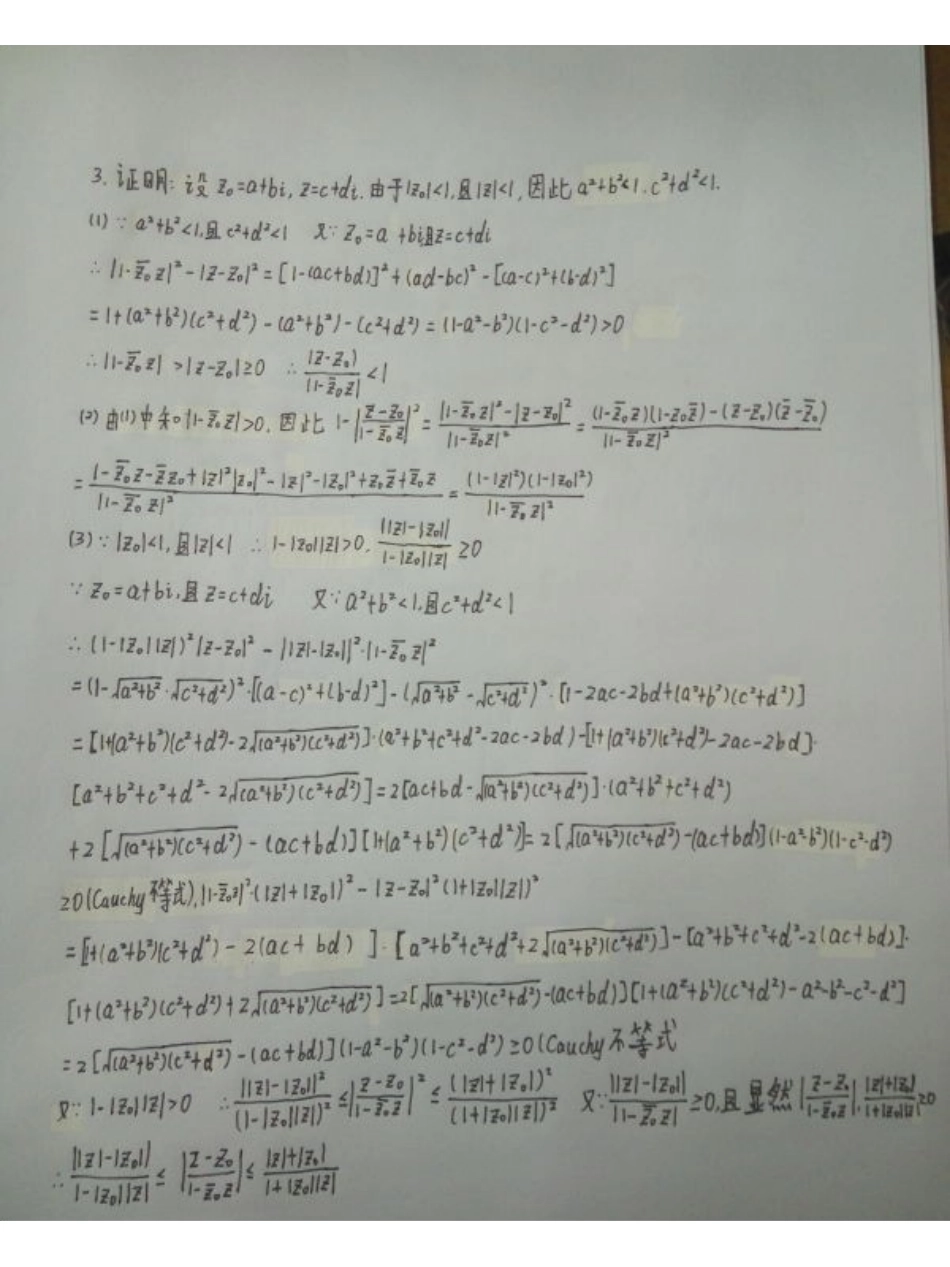 3. 证明: 设 z₀=a+bi, z=c+di. 由于|z₀|<1,且|z|<1, 因此 a²+b²<1. c²+d²<1.
(1) ∵ a²+b²<1,且 c²+d²<1 又∵ z₀=a+bi且z=c+di
∴ |1-z̄₀z|²-|z-z₀|²=[1-(ac+bd)]²+(ad-bc)²-[(a-c)²+(b-d)²]
=1+(a²+b²)(c²+d²)-(a²+b²)-(c²+d²)=(1-a²-b²)(1-c²-d²)>0
∴ |1-z̄₀z|>|z-z₀|≥0 ∴ |z-z₀|/|1-z̄₀z|<1
(2) 由(1)中知|1-z̄₀z|>0, 因此 1-|(z-z₀)/(1-z̄₀z)|²=(|1-z̄₀z|²-|z-z₀|²)/|1-z̄₀z|²=((1-z̄₀z)(1-z₀z̄)-(z-z₀)(z̄-z̄₀))/|1-z̄₀z|²
=(1-z̄₀z-z̄z₀+|z|²|z₀|²-|z|²-|z₀|²+z₀z̄+z̄₀z)/|1-z̄₀z|²=((1-|z|²)(1-|z₀|²))/|1-z̄₀z|²
(3) ∵ |z₀|<1, 且|z|<1 ∴ 1-|z₀||z|>0, ||z|-|z₀||/(1-|z₀||z|)≥0
∵ z₀=a+bi,且z=c+di 又∵ a²+b²<1,且c²+d²<1
∴ (1-|z₀||z|)²|z-z₀|²-||z|-|z₀||²·|1-z̄₀z|²
=(1-√(a²+b²)·√(c²+d²))²·[(a-c)²+(b-d)²]-(√(a²+b²)-√(c²+d²))²·[1-2ac-2bd+(a²+b²)(c²+d²)]
=[1+(a²+b²)(c²+d²)-2√((a²+b²)(c²+d²))]·(a²+b²+c²+d²-2ac-2bd)-[1+(a²+b²)(c²+d²)-2ac-2bd]·
[a²+b²+c²+d²-2√((a²+b²)(c²+d²))]=2[ac+bd-√((a²+b²)(c²+d²))]·(a²+b²+c²+d²)
+2[√((a²+b²)(c²+d²))-(ac+bd)][1+(a²+b²)(c²+d²)]=2[√((a²+b²)(c²+d²))-(ac+bd)](1-a²-b²)(1-c²-d²)
≥0(Cauchy不等式), |1-z̄₀z|²·(|z|+|z₀|)²-|z-z₀|²(1+|z₀||z|)²
=[1+(a²+b²)(c²+d²)-2(ac+bd)]·[a²+b²+c²+d²+2√((a²+b²)(c²+d²))]-[a²+b²+c²+d²-2(ac+bd)]·
[1+(a²+b²)(c²+d²)+2√((a²+b²)(c²+d²))]=2[√((a²+b²)(c²+d²))-(ac+bd)][1+(a²+b²)(c²+d²)-a²-b²-c²-d²]
=2[√((a²+b²)(c²+d²))-(ac+bd)](1-a²-b²)(1-c²-d²)≥0(Cauchy不等式
又∵ 1-|z₀||z|>0 ∴ ||z|-|z₀||²/(1-|z₀||z|)²≤|(z-z₀)/(1-z̄₀z)|²≤(|z|+|z₀|)²/(1+|z₀||z|)² 又∵ ||z|-|z₀||/|1-z̄₀z|≥0,且显然|(z-z₀)/(1-z̄₀z)|,(|z|+|z₀|)/(1+|z₀||z|)≥0
∴ ||z|-|z₀||/(1-|z₀||z|)≤|(z-z₀)/(1-z̄₀z)|≤(|z|+|z₀|)/(1+|z₀||z|)